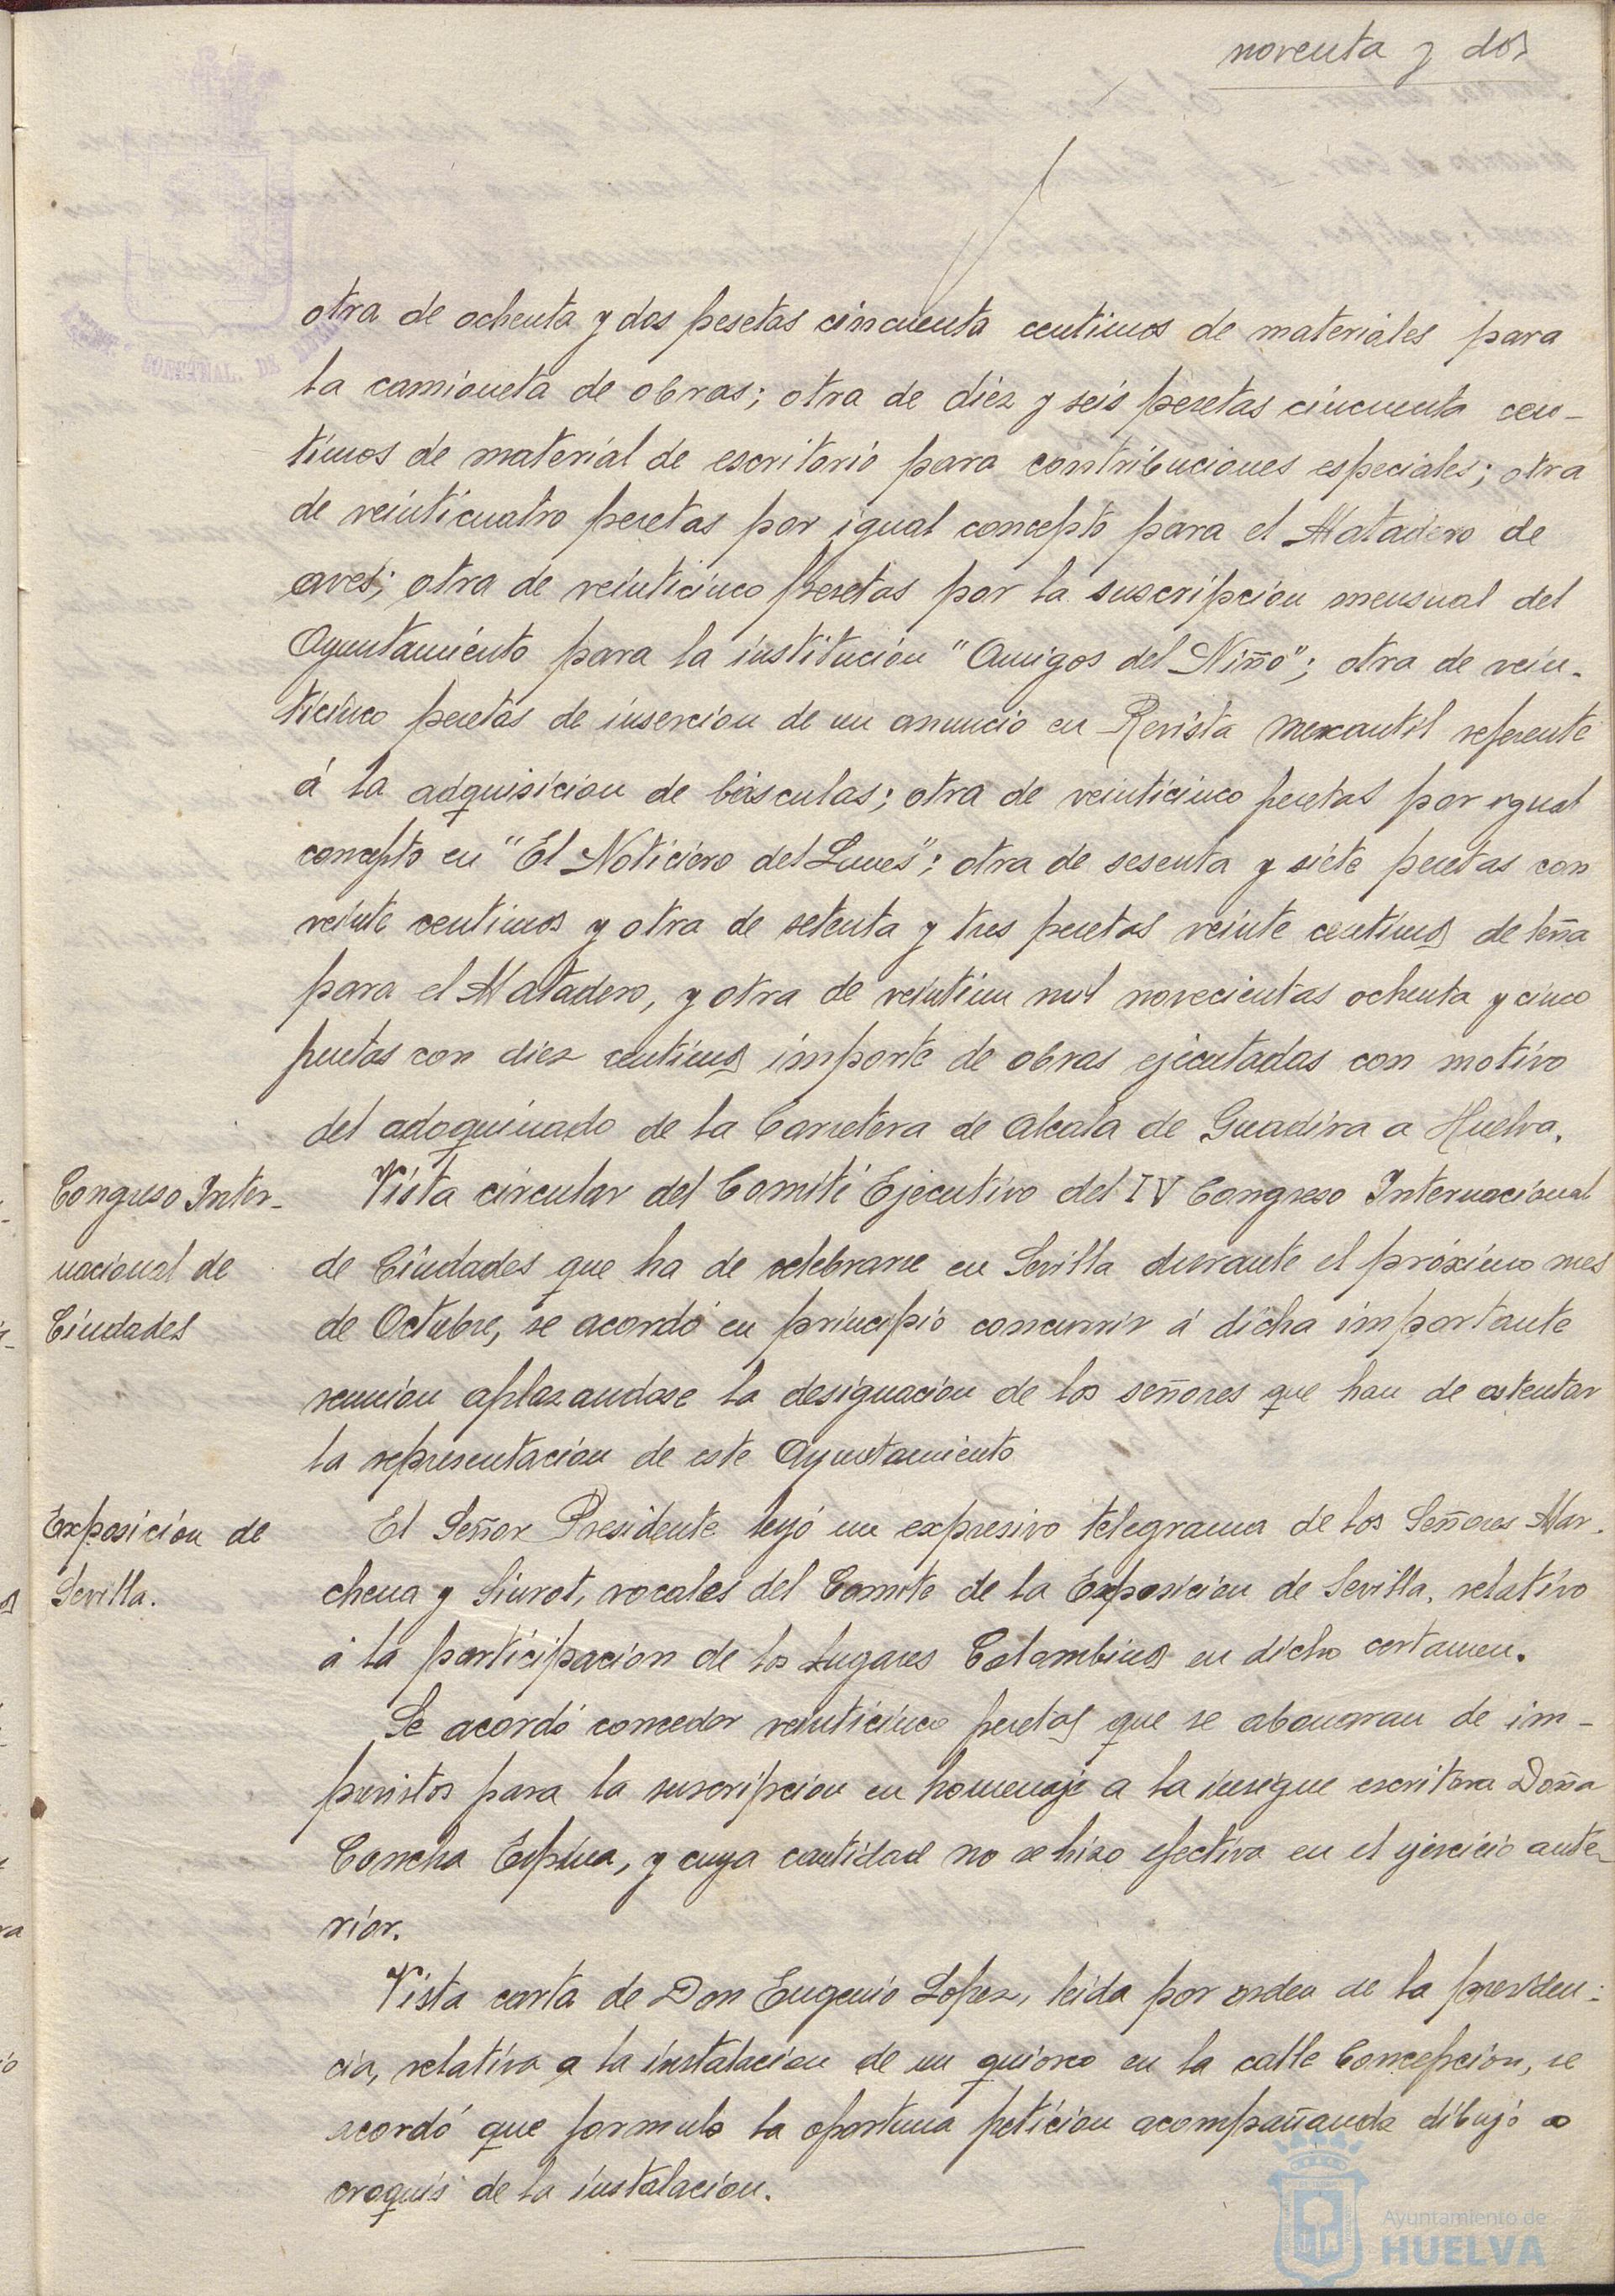 noventa y dos
otra de ochenta y dos pesetas cincuenta centimos de materiales para
la camioneta de obras; otra de diez y seis pesetas cincuenta cen-
timos de material de escritorio para contribuciones especiales; otra
de veinticuatro pesetas por igual concepto para el Matadero de
aves; otra de veinticinco pesetas por la suscripcion mensual del
Ayuntamiento para la institucion "Amigos del Niño"; otra de vein-
ticinco pesetas de insercion de un anuncio en Revista Mercantil referente
á la adquisicion de básculas; otra de veinticinco pesetas por igual
concepto en "El Noticiero del Lunes"; otra de sesenta y siete pesetas con
veinte centimos y otra de setenta y tres pesetas veinte centimos de leña
para el Matadero, y otra de veintiun mil novecientas ochenta y cinco
pesetas con diez centimos importe de obras ejecutadas con motivo
del adoquinado de la Carretera de Alcala de Guadira a Huelva.
Congreso Inter-
nacional de
Ciudades
Vista circular del Comité Ejecutivo del IV Congreso Internacional
de Ciudades que ha de celebrarse en Sevilla durante el próximo mes
de Octubre, se acordó en principio concurrir á dicha importante
reunion aplazandose la designacion de los señores que han de ostentar
la representacion de este Ayuntamiento
Exposición de
Sevilla.
El Señor Presidente leyó un expresivo telegrama de los Señores Mar-
chena y Siurot, vocales del Comite de la Exposicion de Sevilla, relativo
á la participacion de los Lugares Colombinos en dicho certamen.
Se acordó conceder veinticinco pesetas que se abonaran de im-
previstos para la suscripcion en homenaje a la insigne escritora Doña
Concha Espina, y cuya cantidad no se hizo efectiva en el ejercicio ante-
rior.
Vista carta de Don Eugenio Lopez, leida por orden de la presiden-
cia, relativa a la instalacion de un quiosco en la calle Concepcion, se
acordó que formule la oportuna peticion acompañando dibujo o
croquis de la instalacion.
Ayuntamiento de
HUELVA